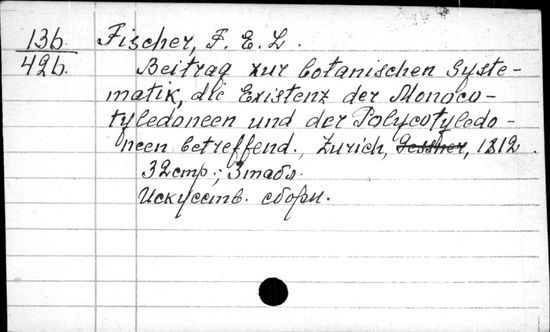 13б. Fischer, F. E. L.
42б. Beitrag zur botanischen Syste-
matik, die Existenz der Monoco-
tyledoneen und der Polycotyledo-
neen betreffend., Zurich, Gessner, 1812.
32стр.; 3табл.
Искусств. сборн.